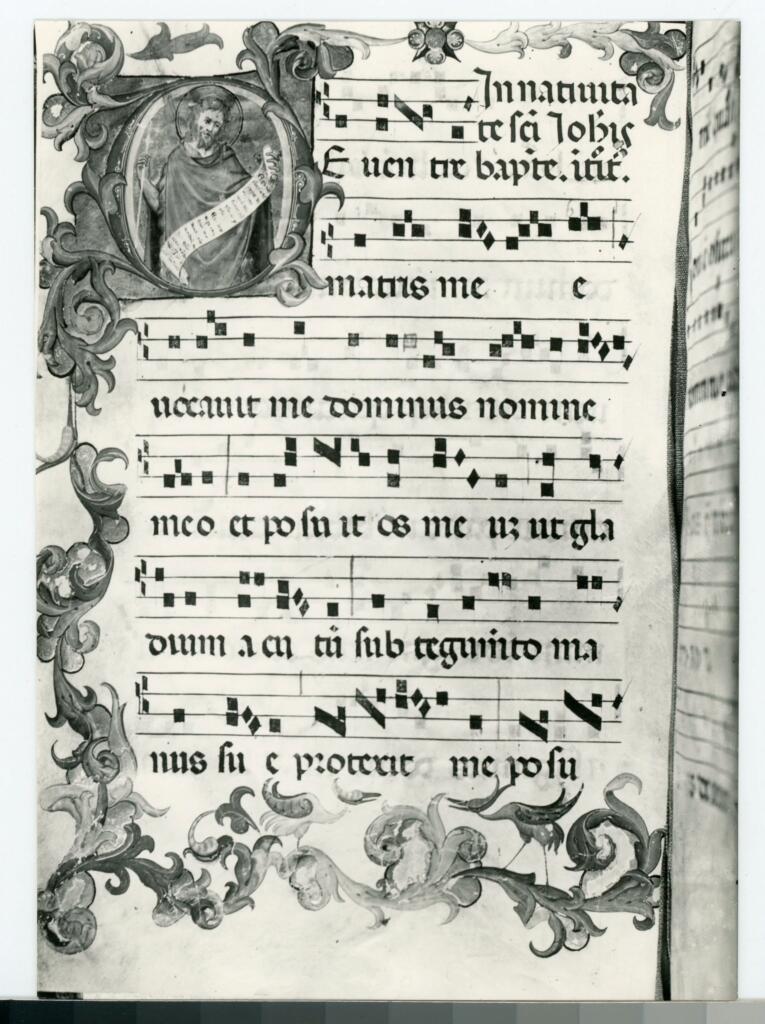 In nativita
te sci Johis
E uen tre bapte. itit.
matris me e
uocauit me dominus nomine
meo et po su it os me uz ut gla
dium a cu tū sub tegumīto ma
nus su e protexit me po su